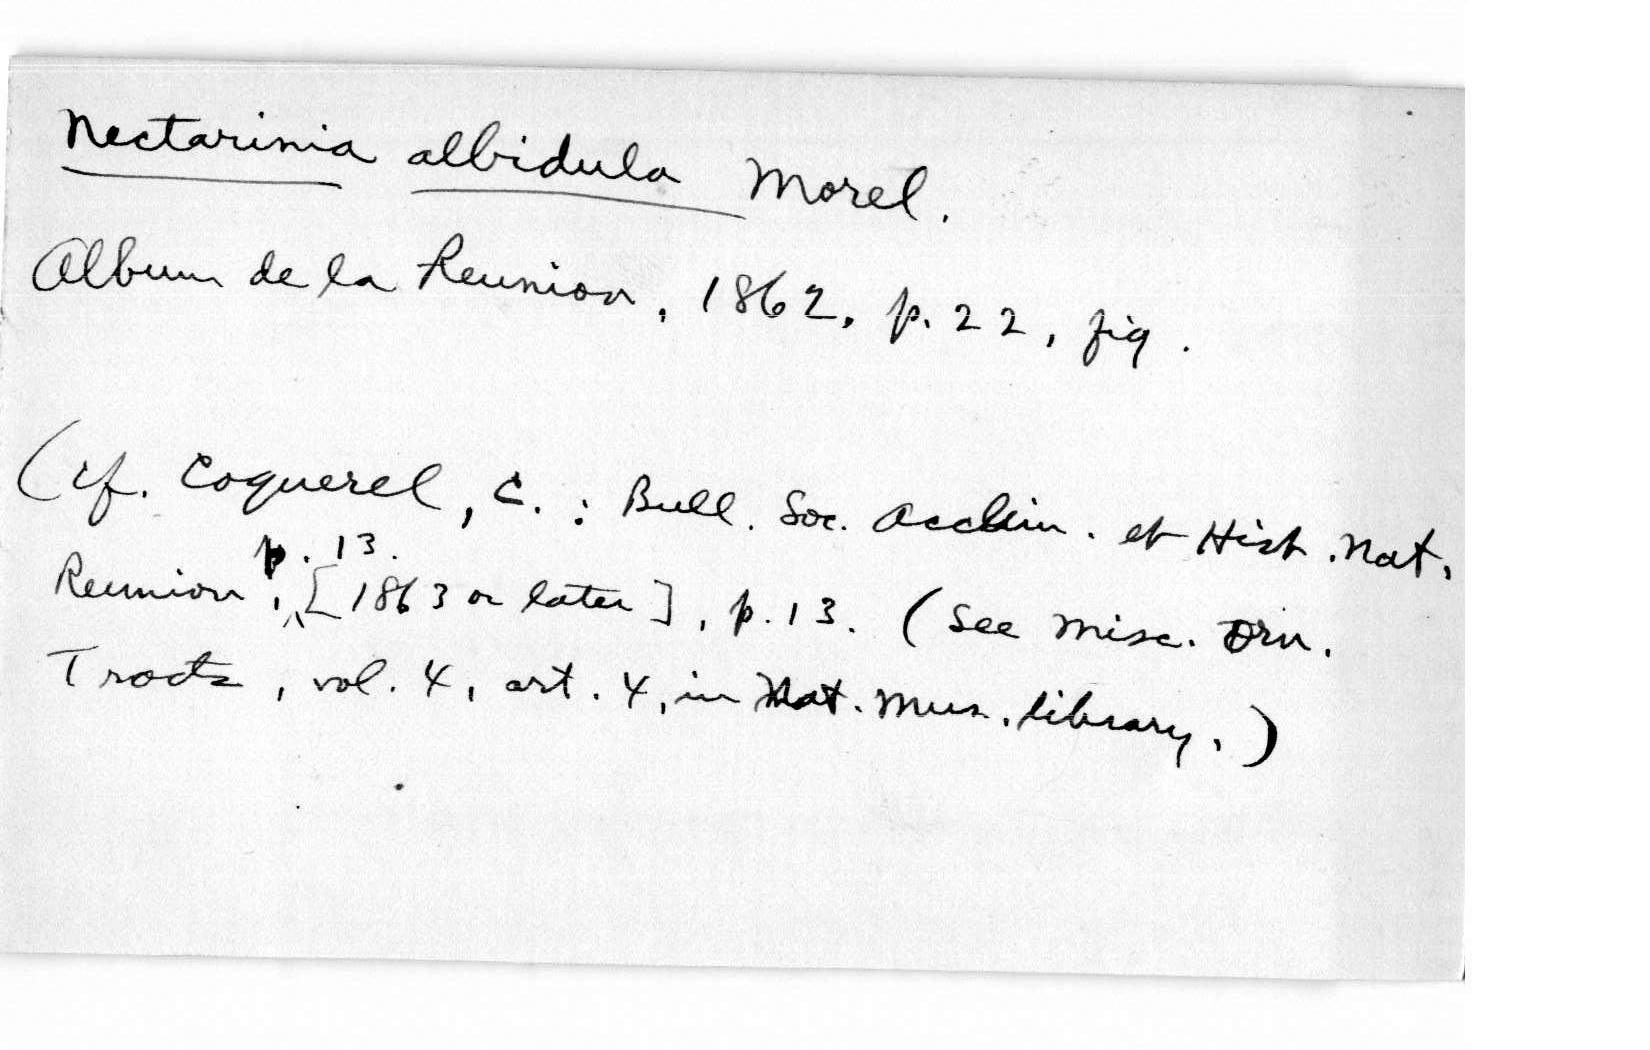 Nectarinia albidula Morel.
Album de la Reunion, 1862, p. 22, fig.
(cf. Coquerel, C. : Bull. Soc. Acclim. et Hist. Nat.
p. 13.
Reunion, [1863 or later], p. 13. (See Misc. Orn.
Tracts, vol. 4, art. 4, in Nat. Mus. library.)